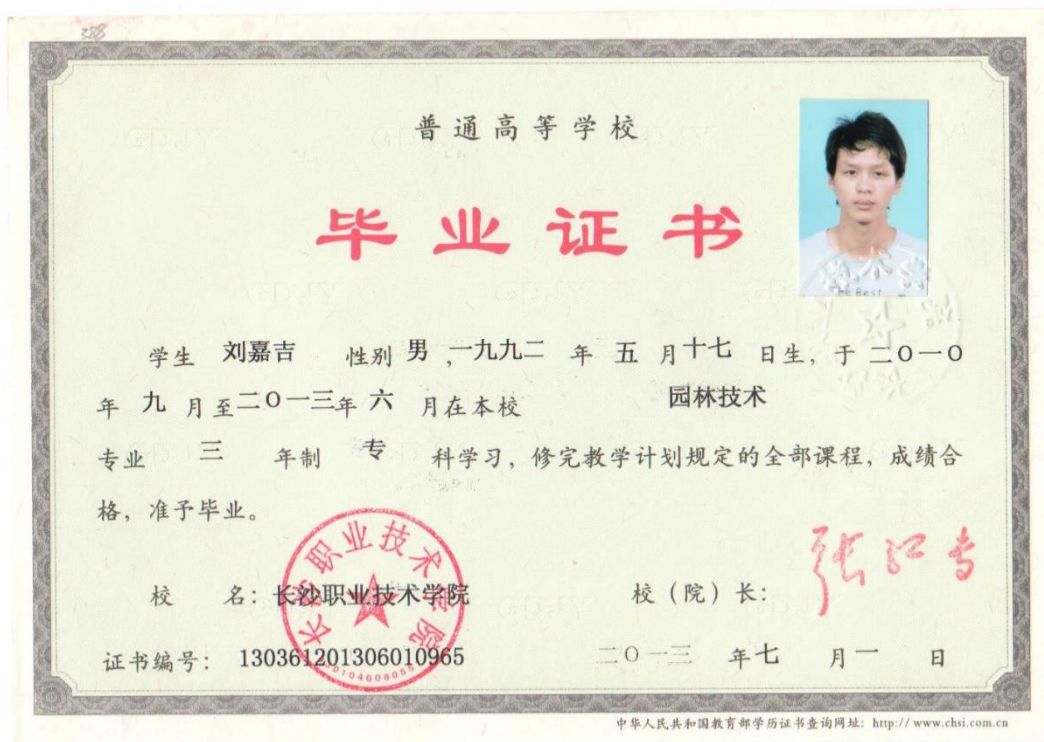 普通高等学校
毕业证书
The Best
学生 刘嘉吉 性别 男，一九九二 年 五 月 十七 日生，于 二〇一〇
年 九 月至二〇一三年 六 月在本校 园林技术
专业 三 年制 专 科学习，修完教学计划规定的全部课程，成绩合
格，准予毕业。
长沙职业技术学院
校 名：长沙职业技术学院 校（院）长：
证书编号：130361201306010965 二〇一三 年七 月一 日
中华人民共和国教育部学历证书查询网址：http://www.chsi.com.cn